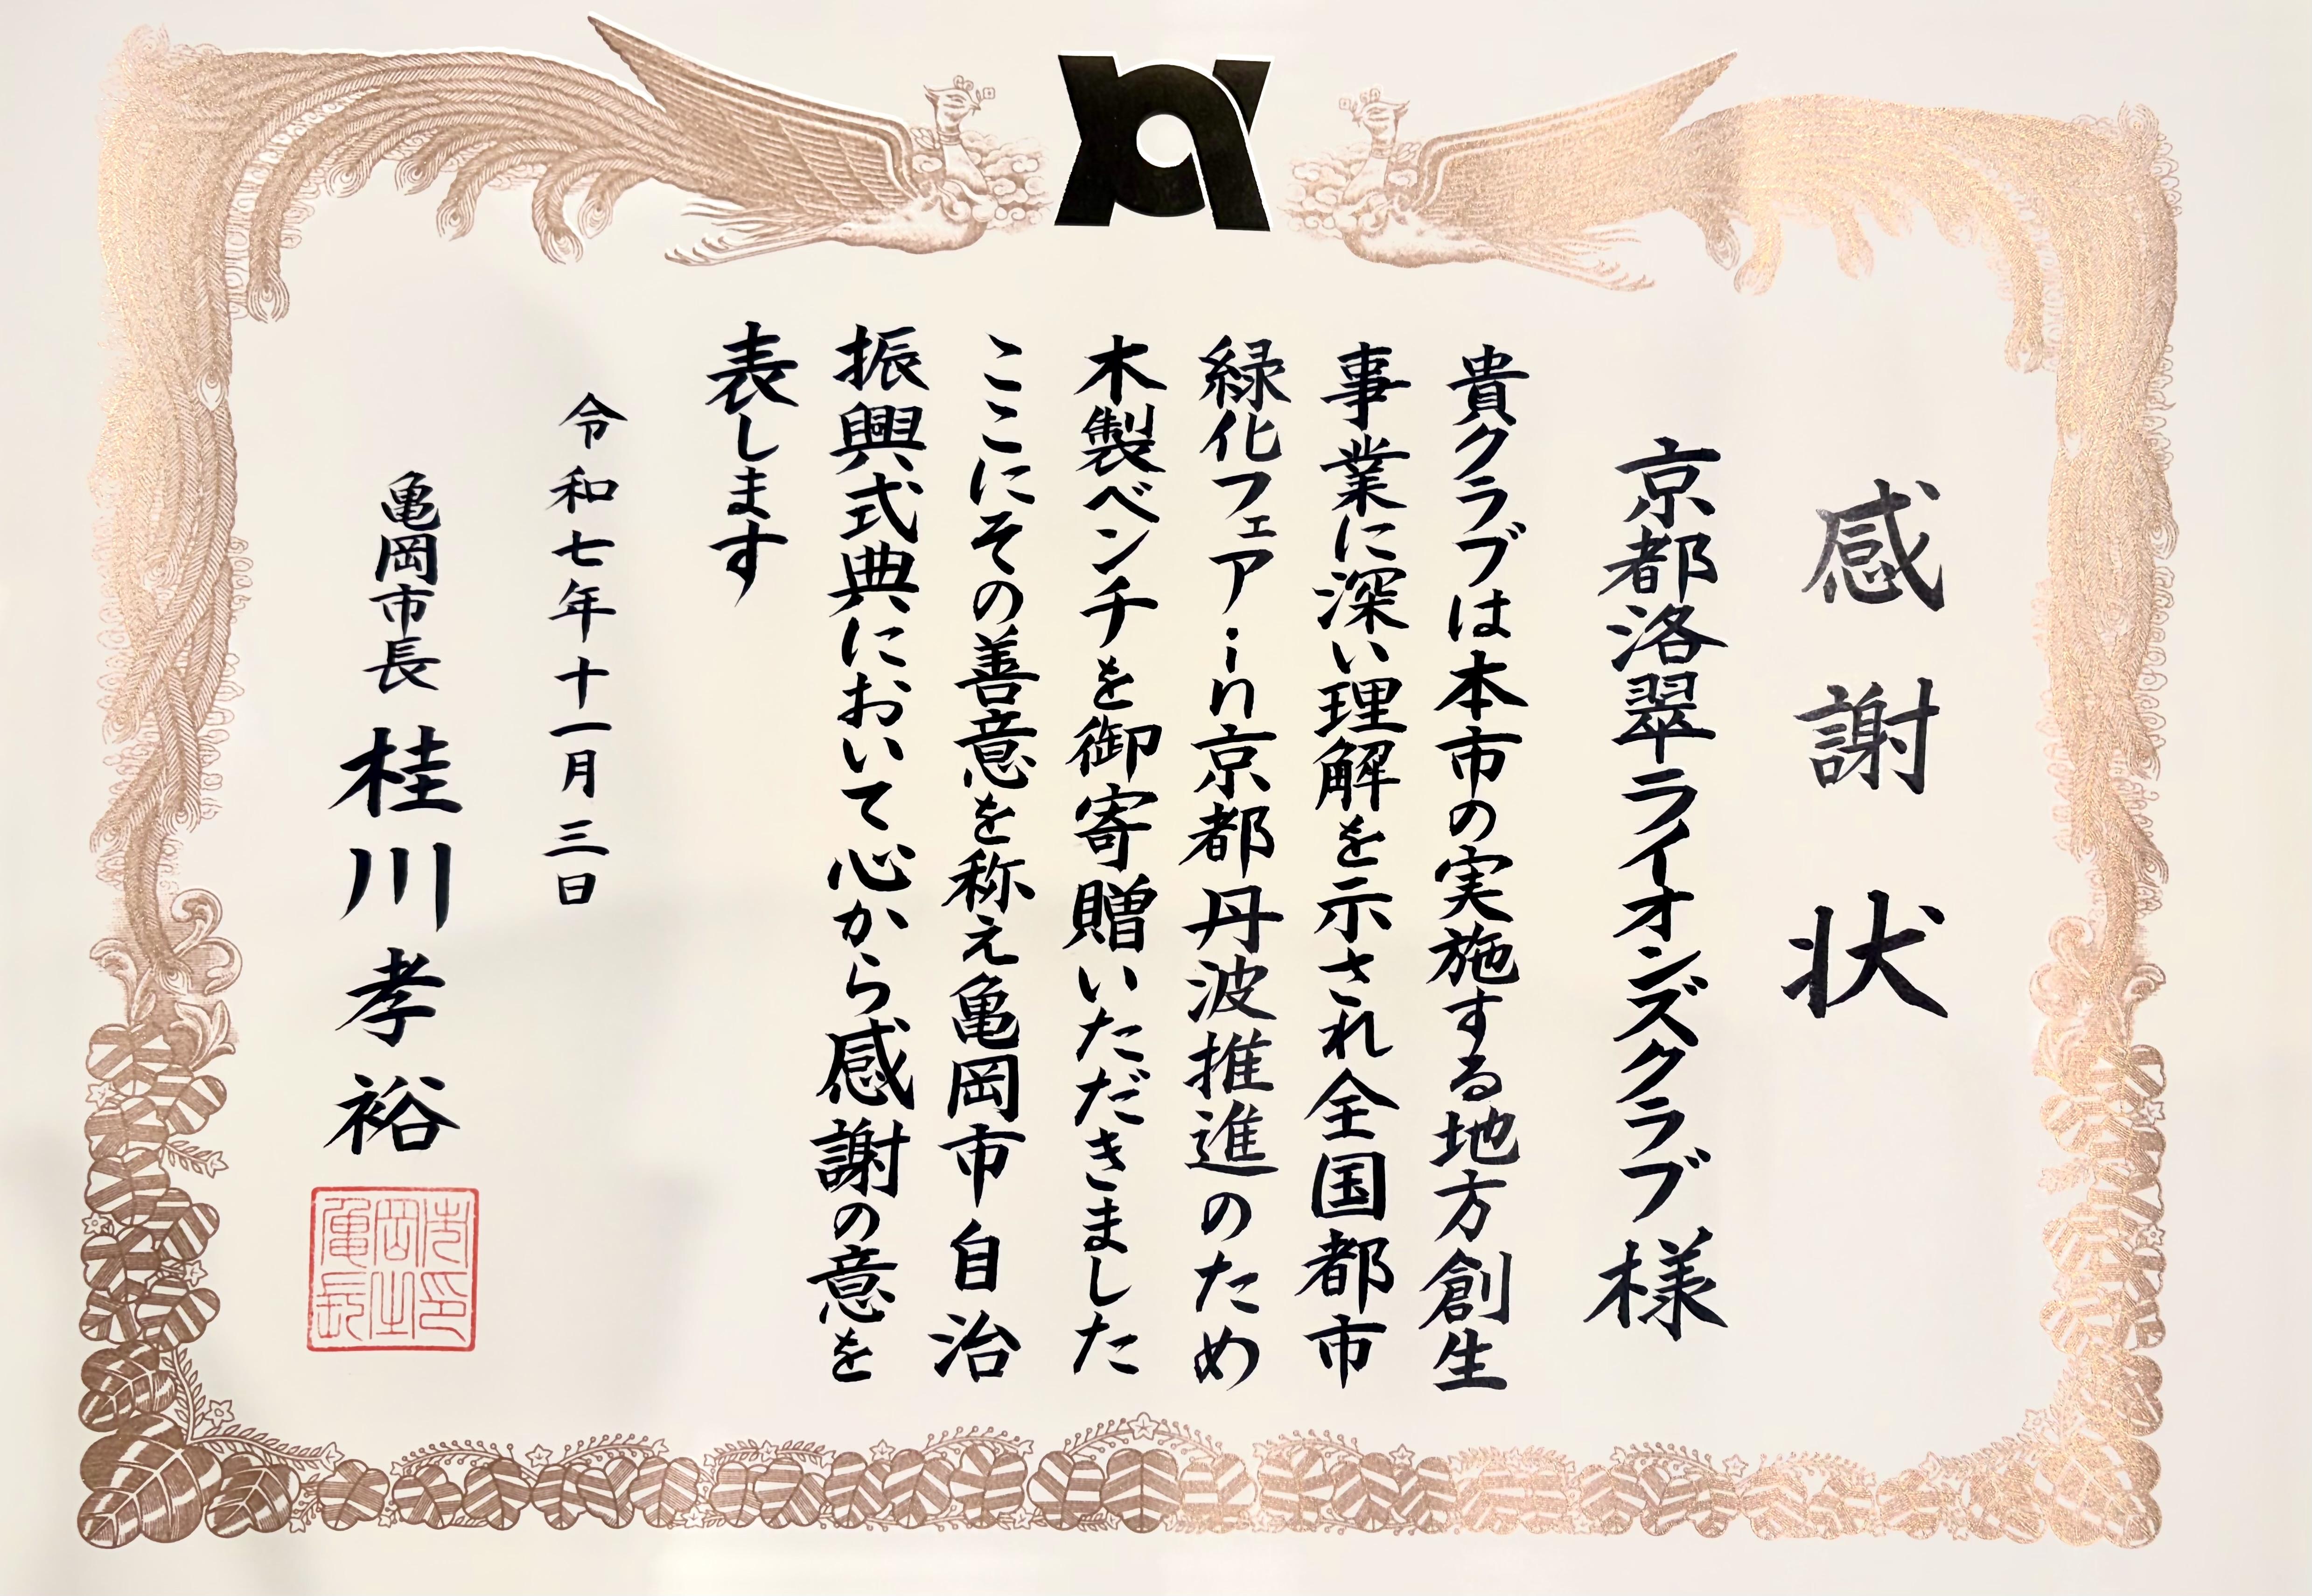 感謝状
京都洛翠ライオンズクラブ様
貴クラブは本市の実施する地方創生
事業に深い理解を示され全国都市
緑化フェアin京都丹波推進のため
木製ベンチを御寄贈いただきました
ここにその善意を称え亀岡市自治
振興式典において心から感謝の意を
表します
令和七年十一月三日
亀岡市長 桂川孝裕